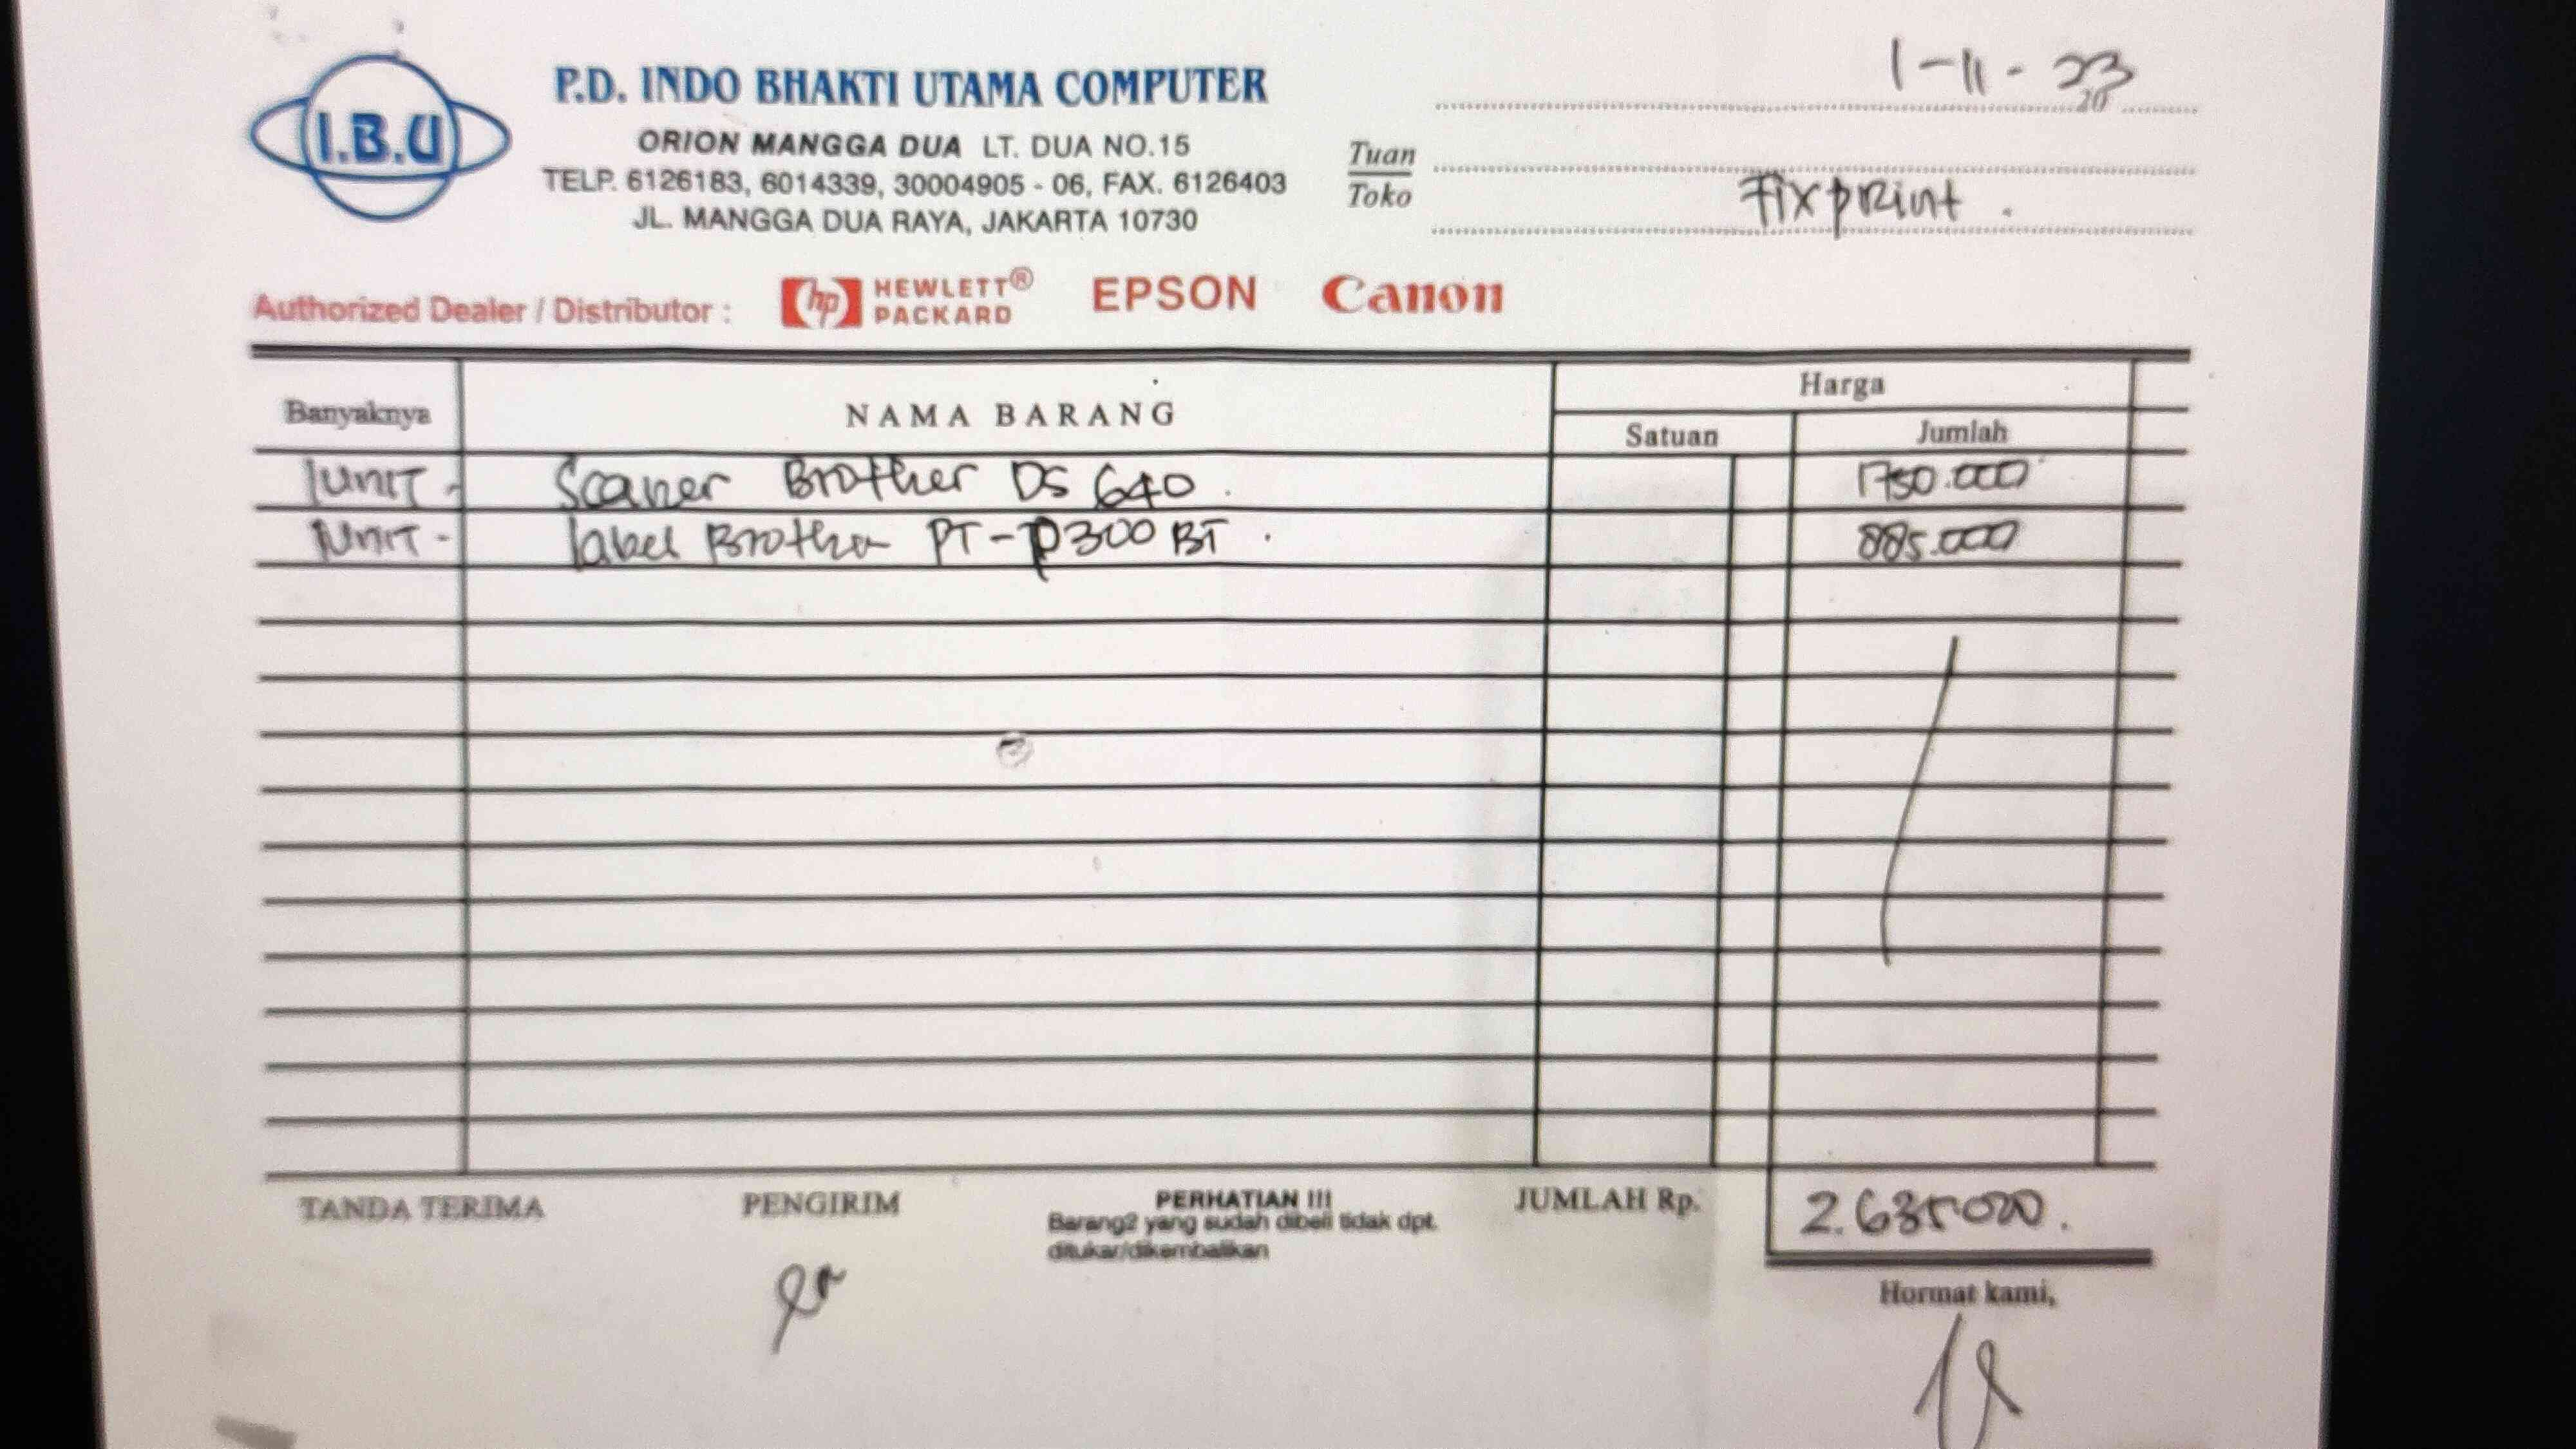 I.B.U
P.D. INDO BHAKTI UTAMA COMPUTER
ORION MANGGA DUA LT. DUA NO.15
TELP. 6126183, 6014339, 30004905 - 06, FAX. 6126403
JL. MANGGA DUA RAYA, JAKARTA 10730
1-11-23
20
Tuan
Toko
Fixprint.
Authorized Dealer / Distributor : hp HEWLETT® PACKARD EPSON Canon
Banyaknya NAMA BARANG Harga
Satuan Jumlah
1 UNIT - Scaner Brother DS 640. 1750.000
1 UNIT - label Brother PT-P300 BT. 885.000
TANDA TERIMA PENGIRIM PERHATIAN !!! JUMLAH Rp. 2.635000.
Barang2 yang sudah dibeli tidak dpt.
ditukar/dikembalikan
Hormat kami,